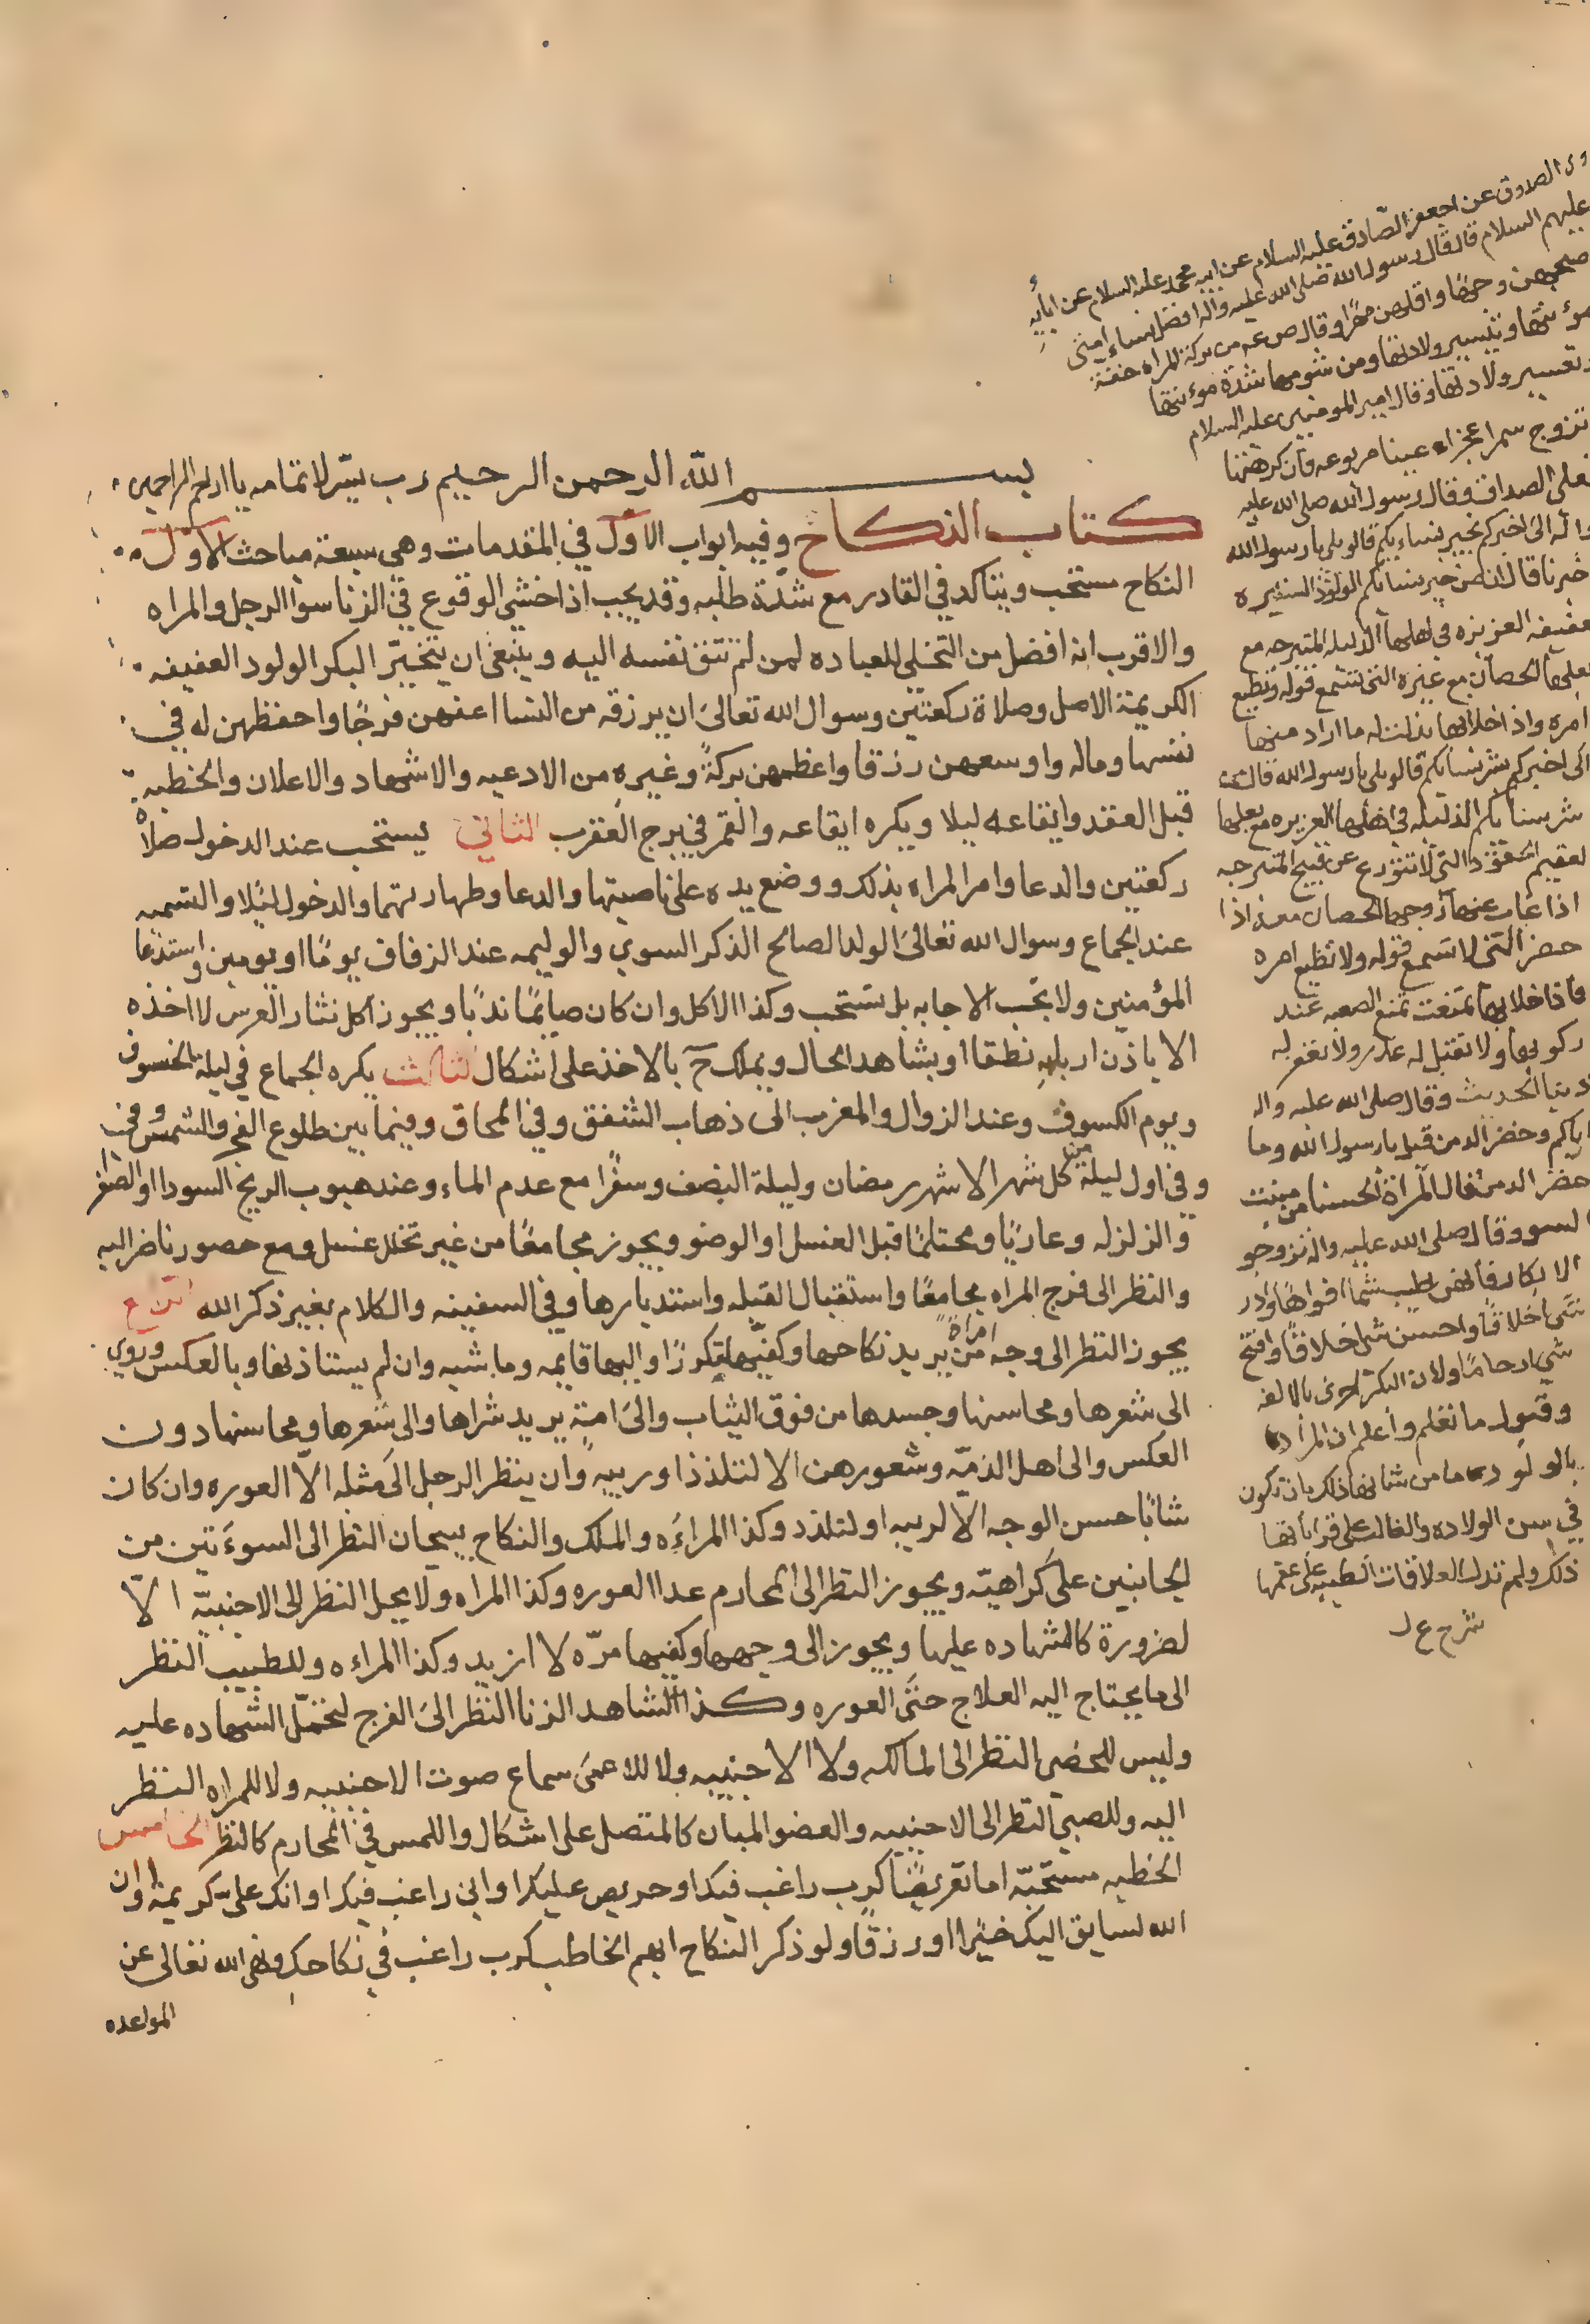 بسم الله الرحمن الرحيم رب يسّر لاتمامه يا ارحم الراحمين
كتاب النكاح وفيه ابواب الاوّل في المقدمات وهي سبعة مباحث الاوّل
النكاح مستحب ويتاكد في القادر مع شدّة طلبه وقد يجب اذا خشي الوقوع في الزنا سوا الرجل والمراه
والاقرب انه افضل من التخلي للعباده لمن لم تتق نفسه اليه وينبغي ان يتخيّر البكر الولود العفيفه
الكريمة الاصل وصلاة ركعتين وسوال الله تعالى ان يرزقه من النسا اعفهن فرجًا واحفظهن له في
نفسها وماله واوسعهن رزقا واعظمهن بركةً وغيره من الادعيه والاشهاد والاعلان والخطبه
قبل العقد وايقاعه ليلا ويكره ايقاعه والقمر في برج العقرب الثاني يستحب عند الدخول صلاة
ركعتين والدعا وامر المراه بذلك ووضع يده على ناصيتها والدعا وطهارتهما والدخول ليلا والتسميه
عند الجماع وسوال الله تعالى الولد الصالح الذكر السوي والوليمه عند الزفاف يومًا او يومين واستدعا
المؤمنين ولا تجب الاجابه بل تستحب وكذا الاكل وان كان صايمًا ندبًا ويجوز اكل نثار العرس لا اخذه
الا باذن اربابه نطقا او بشاهد الحال ويملك ح بالاخذ على اشكال الثالث يكره الجماع في ليلة الخسوف
ويوم الكسوف وعند الزوال والمغرب الى ذهاب الشفق وفي المحاق وفيما بين طلوع الفجر والشمس
وفي اول ليلة من كل شهر الا شهر رمضان وليلة النصف وسفرًا مع عدم الماء وعند هبوب الريح السودا او الصفرا
والزلزله وعاريًا ومحتلمًا قبل الغسل او الوضو ويجوز مجامعًا من غير تخلل غسل ومع حضور ناظر اليه
والنظر الى فرج المراه مجامعًا واستقبال القبله واستدبارها وفي السفينه والكلام بغير ذكر الله الرابع
يجوز النظر الى وجه امراة من يريد نكاحها وكفيّها مكررًا واليها قايمه وماشيه وان لم يستاذنها وبالعكس وروي
الى شعرها ومحاسنها وجسدها من فوق الثياب والى امة يريد شراها والى شعرها ومحاسنها دون
العكس والى اهل الذمّه وشعورهن الا لتلذذ او ريبه وان ينظر الرجل الى مثله الا العوره وان كان
شابًا حسن الوجه الا لريبه او لتلذذ وكذا المراءه والملك والنكاح يبيحان النظر الى السوءتين من
الجانبين على كراهيّه ويجوز النظر الى المحارم عدا العوره وكذا المراه ولا يحل النظر الى الاجنبيّه الّا
لضرورة كالشهاده عليها ويجوز الى وجهها وكفيها مرّه لا ازيد وكذا المراءه وللطبيب النظر
الى ما يحتاج اليه العلاج حتّى العوره وكذا الشاهد الزنا النظر الى الفرج لتحمّل الشهاده عليه
وليس للخصي النظر الى المالكه ولا الاجنبيه ولا للاعمى سماع صوت الاجنبيه ولا للمراه النظر
اليه وللصبي النظر الى الاجنبيه والعضو المبان كالمتصل على اشكال واللمس في المحارم كالنظر الخامس
الخطبه مستحبّه اما تعريضًا كرب راغب فيك او حريص عليك او اني راغب فيك او انك علي كريمة او ان
الله لسايق اليك خيرًا او رزقًا ولو ذكر النكاح ابهم الخاطب كرب راغب في نكاحك ونهى الله تعالى عن
المواعده
الصدوق عن جعفر الصّادق عليه السلام عن ابيه محمد عليه السلام عن ابائه
عليهم السلام قال قال رسول الله صلى الله عليه واله افضل نساء امتي
وجهًا واقلهن مهرًا وقال من بركة المراه خفة
مؤنتها وتيسير ولادتها ومن شومها شدة مؤنتها
وتعسير ولادتها وقال امير المومنين عليه السلام
تزوج سمرا عجزاء عينا مربوعه فان كرهتها
فعلي الصداق وقال رسول الله صلى الله عليه
واله الى اخبركم بخير نسايكم قالو بلى يا رسول الله
خبرنا قال ان من خير نسائكم الولود الستيره
العفيفه العزيزه في اهلها الذليله المتبرجه مع
بعلها الحصان مع غيره التي تسمع قوله وتطيع
امره واذا خلا بها بذلت له ما اراد منها
الى اخبركم بشر نسايكم قالو بلى يا رسول الله قال
شر نسايكم الذليله في اهلها العزيزه مع بعلها
العقيم التي لا تتورع عن قبيح المتبرجه
اذا غاب عنها زوجها الحصان معه اذا
حضر التي لا تسمع قوله ولا تطيع امره
فاذا خلا بها تمنعت تمنع الصعبه عند
ركوبها ولا تقبل له عذر ولا تغفر له
الحديث وقال صلى الله عليه واله
اياكم وخضر الدمن قيل يا رسول الله وما
خضر الدمن قال المرأة الحسنا من منبت
السو وقال صلى الله عليه واله تزوجو
الابكار فانهن اطيب شيئا افواهًا وادر
شي اخلاقًا واحسن شي اخلاقًا وافتح
شي ارحامًا ولان البكر احرى بالالفه
وقبول ما تعلم واعلم ان المراد
بالولود من شانها ذلك بان تكون
في سن الولاده والغالب على قراباتها
ذلك ولم تدل العلاقات الطبيه على عقمها
شرح ع ل